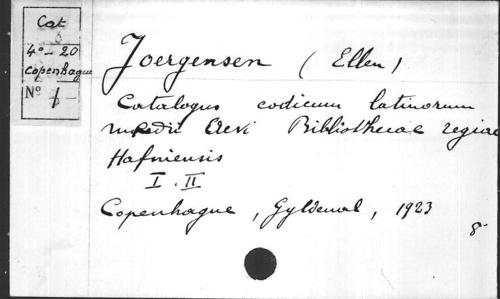 Cat
4°-20
Copenhague
N° 1
Joergensen (Ellen)
Catalogus codicum latinorum
medii Aevi Bibliothecae regiae
Hafniensis
I. II
Copenhague, Gyldendal, 1923
8°